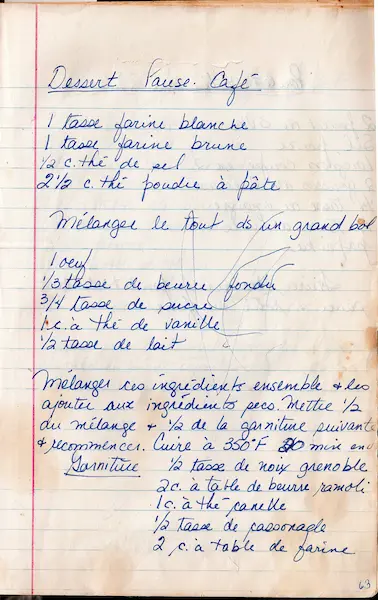 Dessert Pause-Café
1 tasse farine blanche
1 tasse farine brune
1/2 c. thé de sel
2 1/2 c. thé poudre à pâte
Mélanger le tout ds un grand bol
1 oeuf
1/3 tasse de beurre fondu
3/4 tasse de sucre
1 c. à thé de vanille
1/2 tasse de lait
Mélanger ces ingrédients ensemble + les
ajouter aux ingrédients secs. Mettre 1/2
du mélange + 1/2 de la garniture suivante
+ recommencer. Cuire à 350°F 20 min env
Garniture 1/2 tasse de noix grenoble
2 c. à table de beurre ramoli
1 c. à thé canelle
1/2 tasse de cassonagle
2 c. à table de farine
63